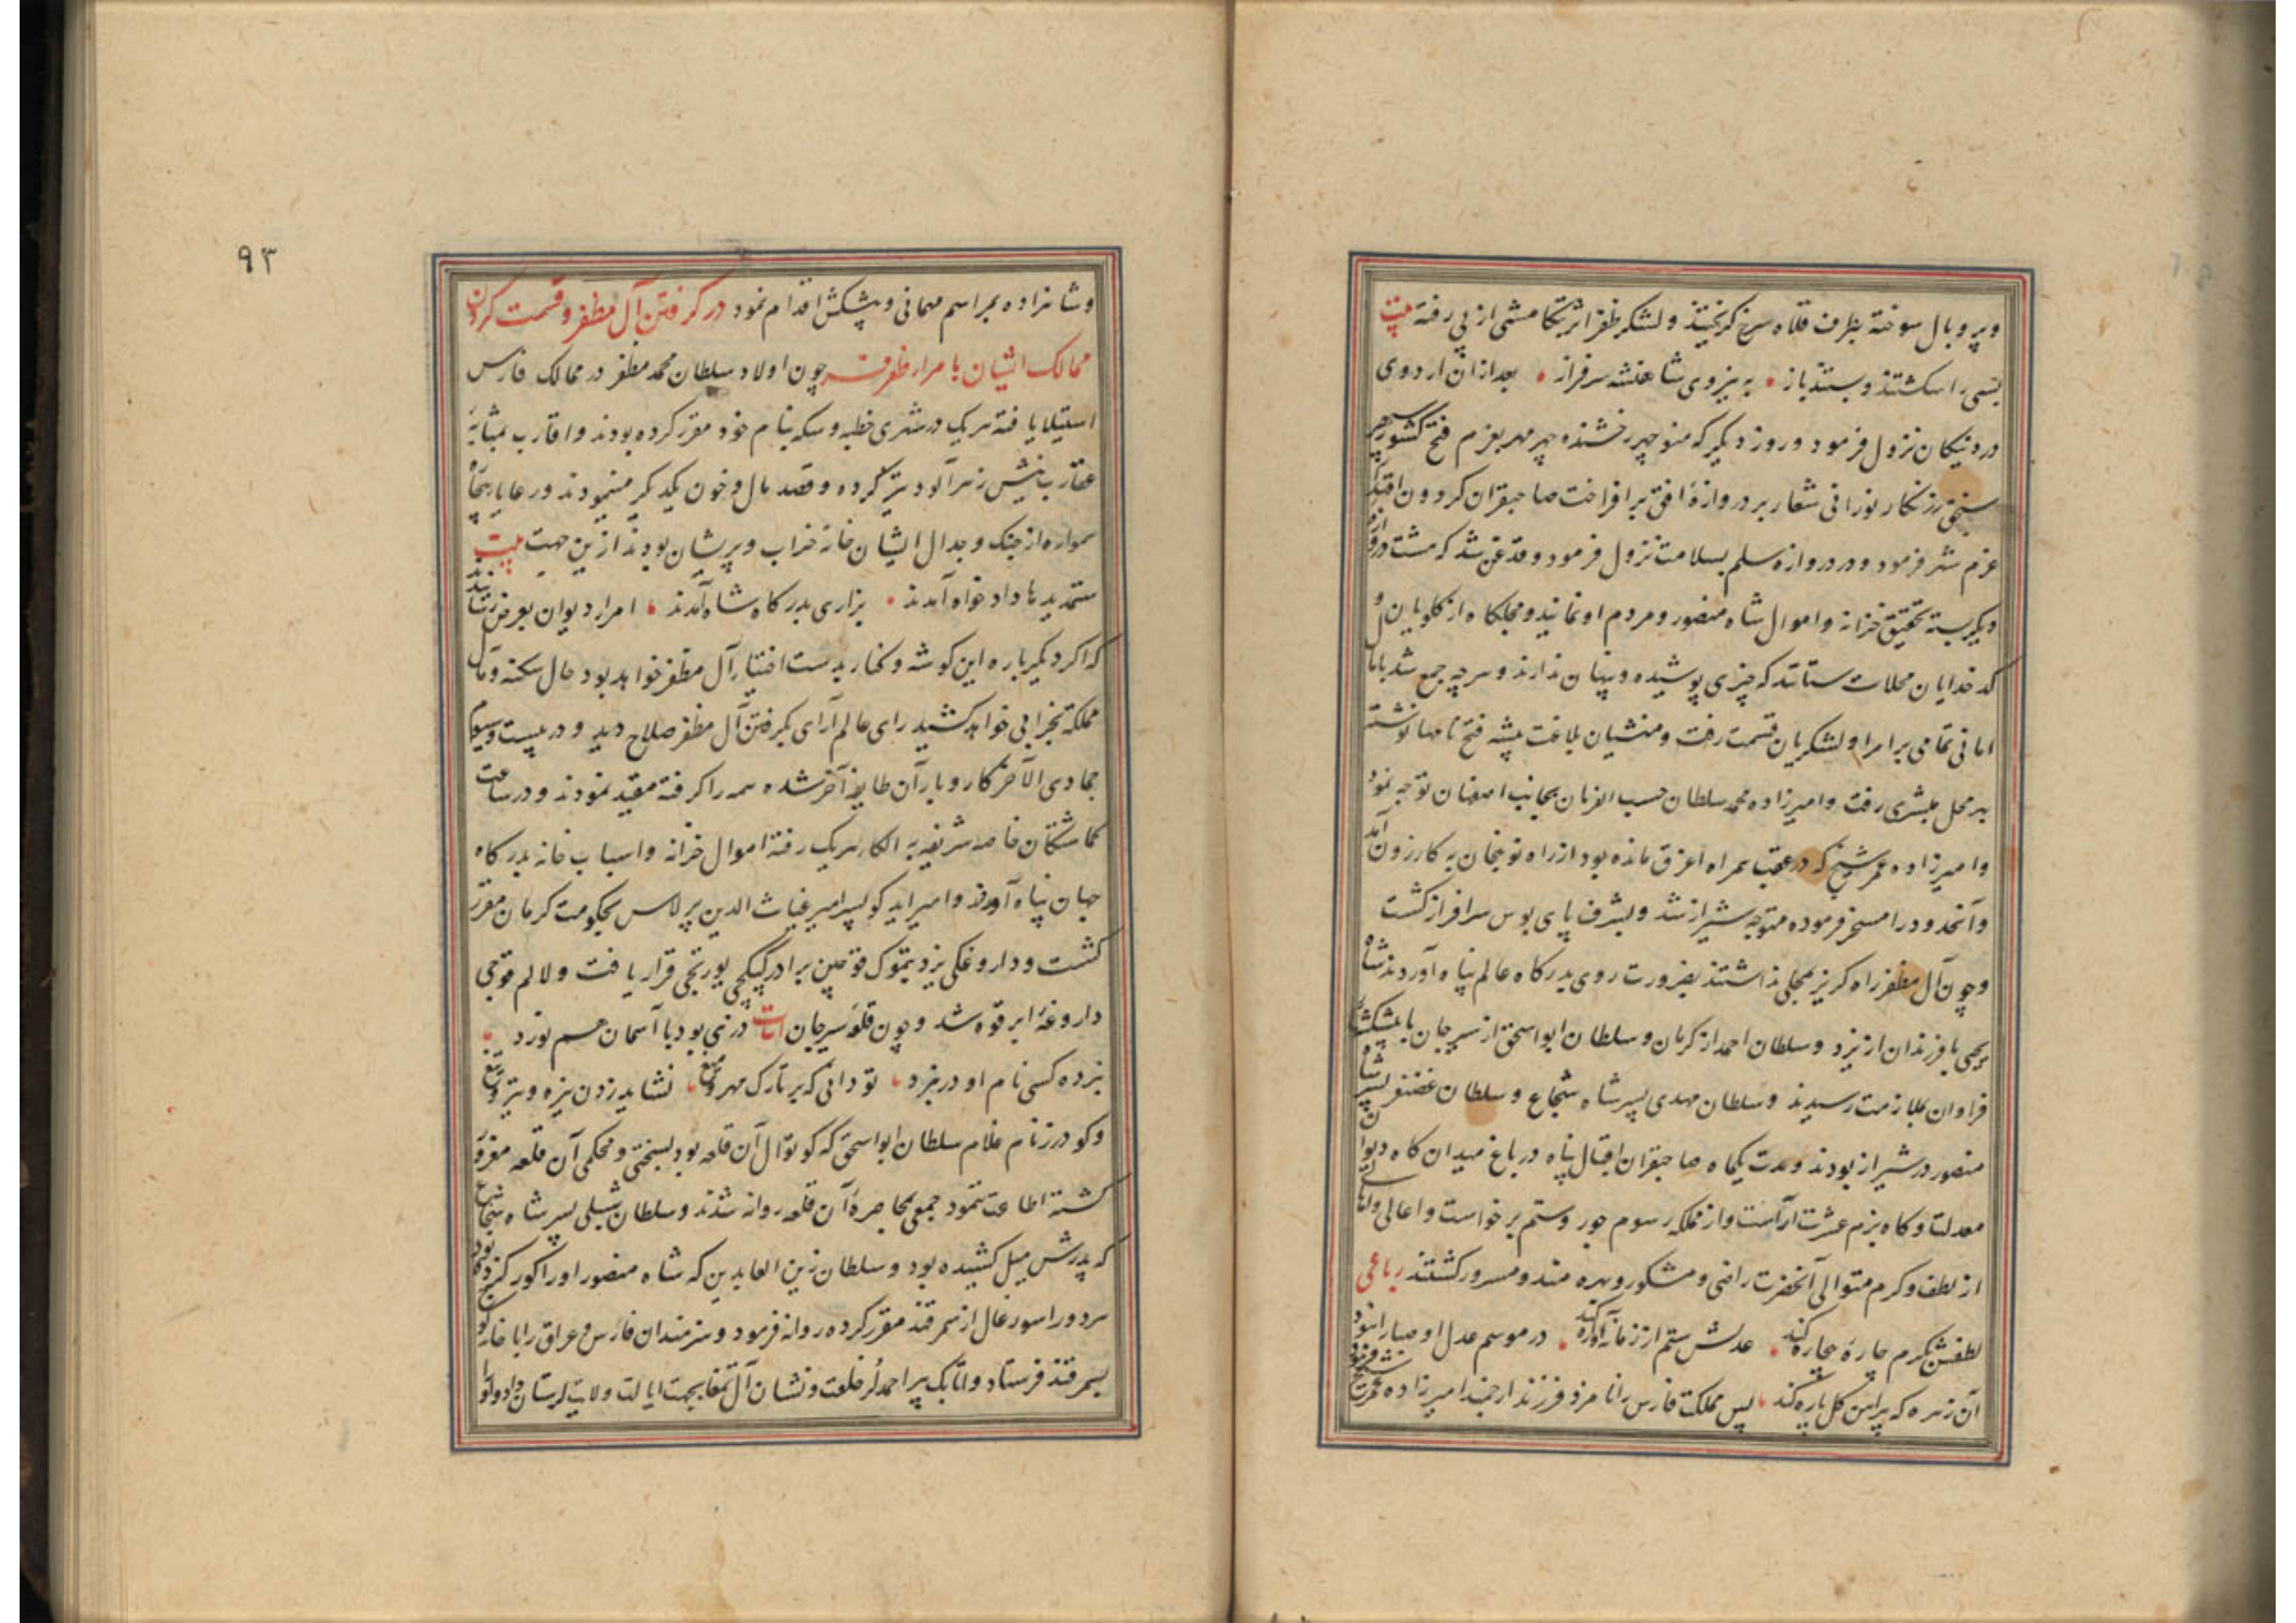 وپر و بال سوخته بطرف قلاه سرخ کریختند و لشکر ظفر اثر تکامشی از پی رفته بیت
بسی را بکشتند و بستند باز • به نیروی شاهنشه سرفراز • بعد ازان اردوی
در دنیکان نزول فرمود و روز دیکر که منوچهر رخشنده چهر مهر بعزم فتح کشور سپهر
سنجق زرنکار نورانی شعار بر دروازهٔ افق برافراخت صاحبقران کردون اقتدار
عزم شهر فرمود و در دروازه سلم بسلامت نزول فرمود و قدغن شد که هشت دروازه
دیکر بسته تحقیق خزانه و اموال شاه منصور و مردم او نمایند و مجلکا از کلویان و
کدخدایان محلات ستانند که چیزی پوشیده و پنهان ندارند و هرچه جمع شد بامال
امانی تمامی بر امرا و لشکریان قسمت رفت و منشیان بلاغت پیشه فتح نامها نوشته
بهر محل مبشری رفت و امیرزاده محمد سلطان حسب الفرمان بجانب اصفهان توجه نمود
و امیرزاده عمر شیخ که در عقب همراه اغرق مانده بود از راه نوبنجان به کازرون آمد
و آنحدود را مسخر فرموده متوجه شیراز شد و بشرف پای بوس سرافراز کشت
و چون آل مظفر راه کریز بجایی نداشتند بضرورت روی بدرکاه عالم پناه آوردند شاه
یحیی با فرزندان از یزد و سلطان احمد از کرمان و سلطان ابو اسحق از سیرجان با پیشکشهای
فراوان بملازمت رسیدند و سلطان مهدی پسر شاه شجاع و سلطان غضنفر پسر شاه
منصور در شیراز بودند و مدت یکماه صاحبقران اقبال پناه در باغ میدان کاه دیوان
معدلت و کاه بزم عشرت آراست و از مملکه رسوم جور و ستم برخواست و اعالی و اهالی
از لطف و کرم متوالی آنحضرت راضی و مشکور و بهره مند و مسرور کشتند رباعی
لطفش بکرم چارهٔ بیچاره کند • عدلش ستم از زمانه آواره کند • در موسم عدل او صبا را نبود
آن زهره که پیراهن کل پاره کند • پس مملکت فارس را نامزد فرزند ارجمند امیرزاده عمر شیخ فرمود
۹۳
و شاهزاده بمراسم مهمانی و پیشکش اقدام نمود در کرفتن آل مظفر و قسمت کردن
ممالک ایشان بامرا چون اولاد سلطان محمد مظفر در ممالک فارس
استیلا یافته هریک در شهری خطبه و سکه بنام خود مقرر کرده بودند و اقارب بمثابهٔ
عقارب نیش زهرآلود تیز کرده و قصد مال و خون یکدیکر مینمودند و رعایا بیچاره
همواره از جنک و جدال ایشان خانه خراب و پریشان بودند ازین جهت بیت
ستمدیدها دادخواه آمدند • بزاری بدرکاه شاه آمدند • امرا دیوان بعرض رسانیدند
که اکر دیکرباره این کوشه و کنار بدست اختیار آل مظفر خواهد بود حال سکنه و مآل
مملکه بخرابی خواهد کشید رای عالم آرای بکرفتن آل مظفر صلاح دید و در بیست و سیوم
جمادی الآخر کار و بار آن طایفه آخر شده همه را کرفته مقید نمودند و در ساعت
کماشتکان خاصه شریفه به الکاء هریک رفته اموال خزانه و اسباب خانه بدرکاه
جهان پناه آوردند و امیر ایدکو پسر امیر غیاث الدین برلاس بحکومت کرمان مقرر
کشت و داروغکی یزد بتموک قوچین برادر کیکجی یورتجی قرار یافت و لالم قوجی
داروغهٔ ابرقوه شد و چون قلعهٔ سیرجان ابیات درزی بود با آسمان هم نورد
نبرده کسی نام او در نبرد • تو دانی که بر تارک مهر و میغ • نشاید زدن نیزه و تیر و تیغ
و کودرز نام غلام سلطان ابو اسحق که کوتوال آن قلعه بود بسختی و محکمی آن قلعه مغرور
کشته اطاعت ننمود جمعی بمحاصرهٔ آن قلعه روانه شدند و سلطان شبلی پسر شاه شجاع
که پدرش میل کشیده بود و سلطان زین العابدین که شاه منصور او را کور کرده بود
هر دو را سورغال از سمرقند مقرر کرده روانه فرمود و هنرمندان فارس و عراق را با خانه کوچ
بسمرقند فرستاد و اتابک پیر احمد لر خلعت و نشان آل تمغا بجهت ایالت ولایت لرستان داد و او را